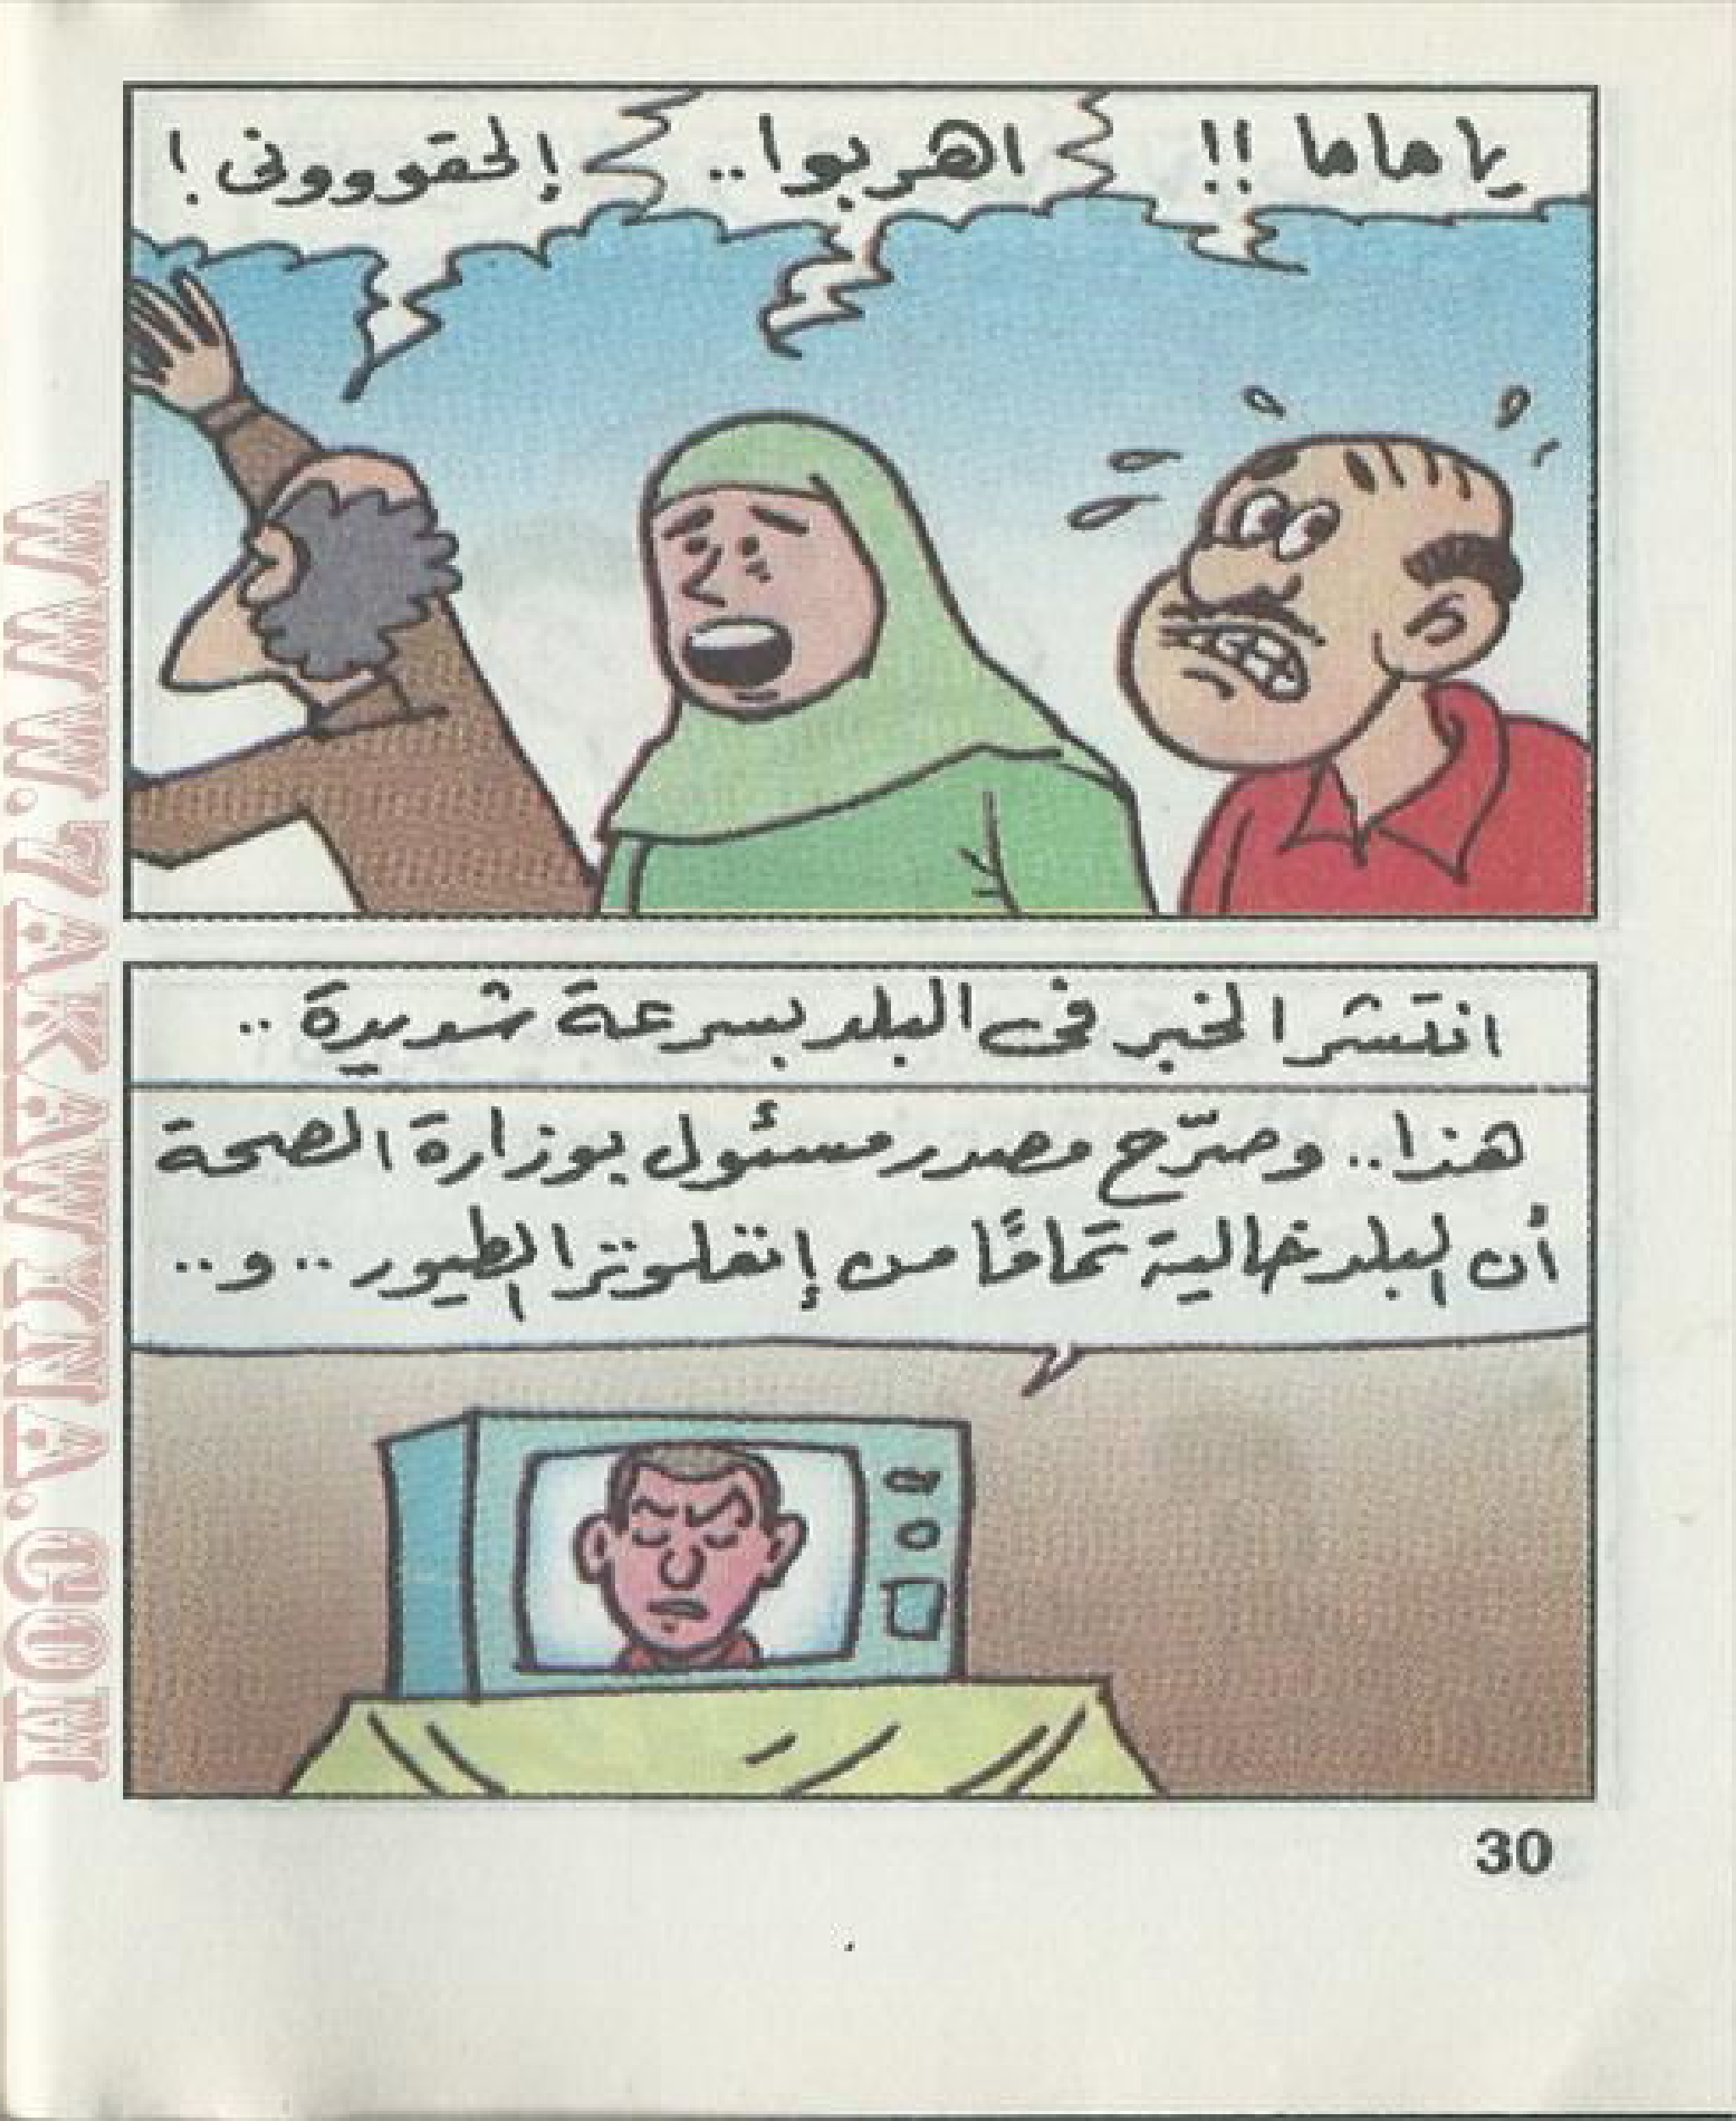 يا ماما !!
اهربوا..
إلحقووونى !
انتشر الخبر فى البلد بسرعة شديدة ..
هذا.. وصرّح مصدر مسئول بوزارة الصحة
أن البلد خالية تمامًا من إنفلونزا الطيور .. و..
30
WWW.7AKAWTNA.COM